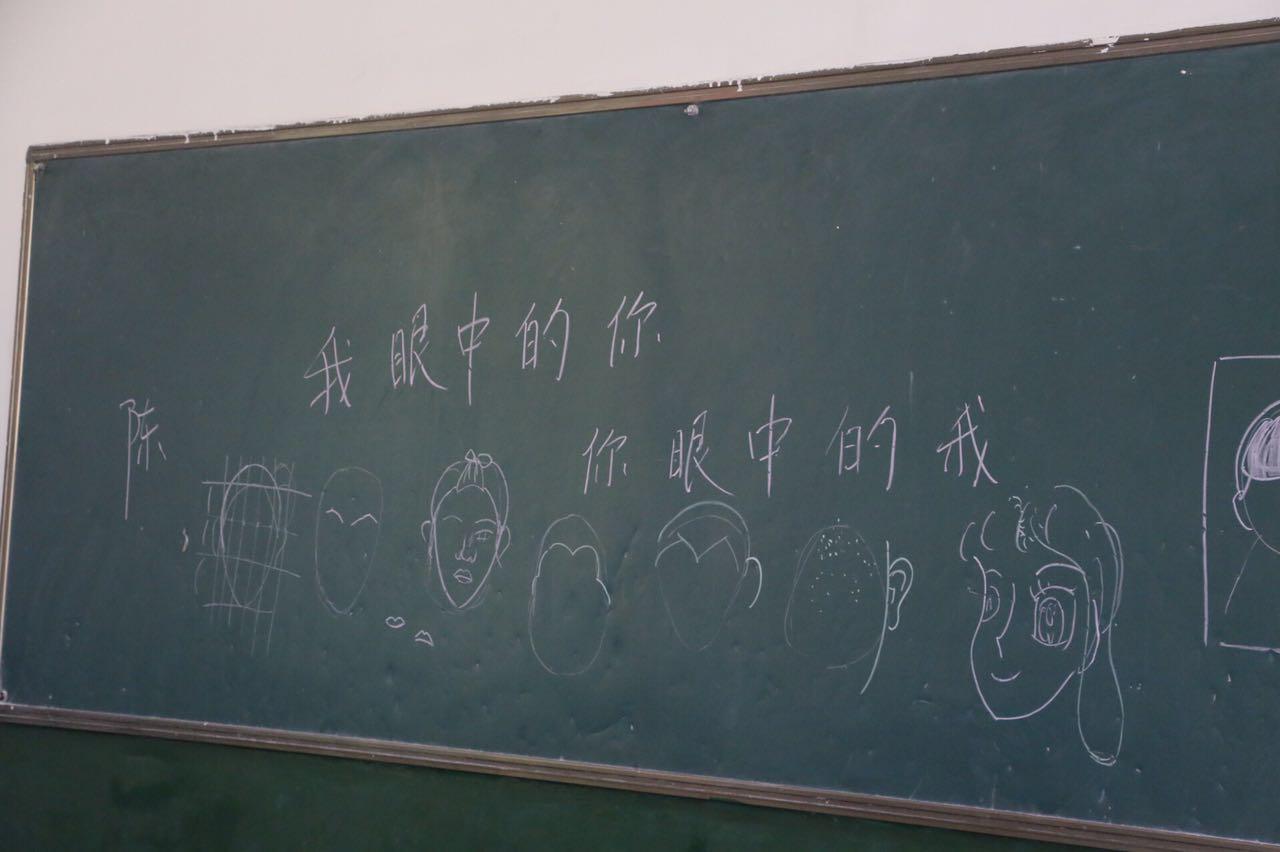 我眼中的你
陈
你眼中的我